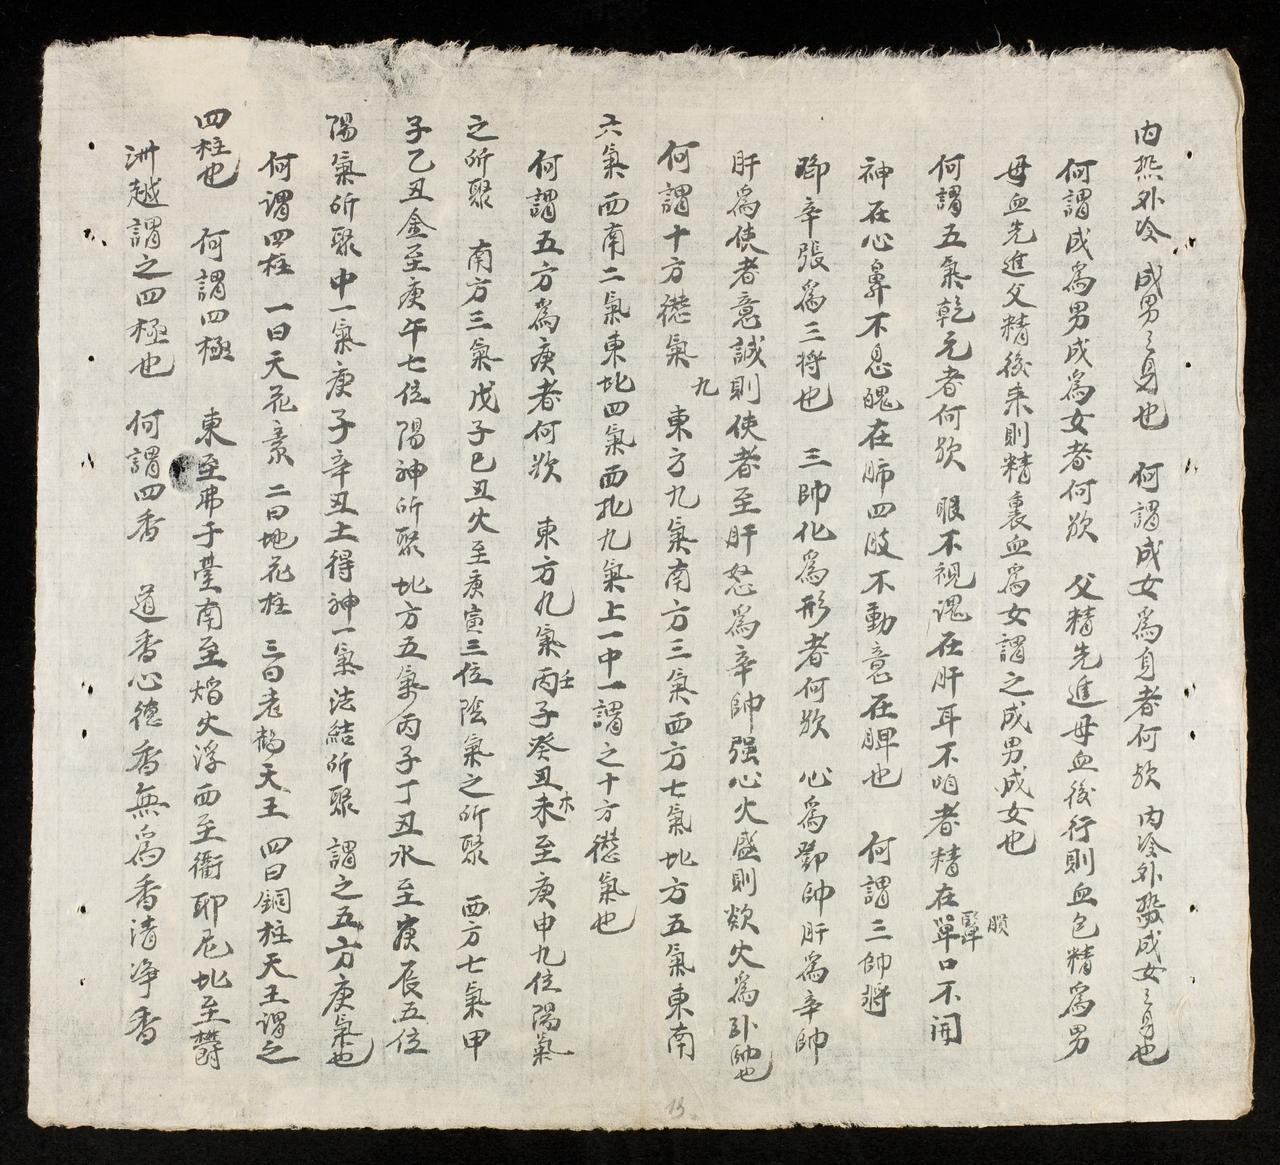 内热外冷 成男之身也 何謂成女爲身者何欤 内冷外熱成女之身也
何謂成爲男成爲女者何欤 父精先進母血後行則血包精爲男
母血先進父精後来則精裹血爲女謂之成男成女也
何謂五氣乾元者何欤 眼不視魂在肝耳不咱者精在單口不開
神在心鼻不息魄在肺四肢不動意在脾也 何謂三帥將
鄧辛張爲三將也 三帥化爲形者何欤 心爲鄧帥肝爲辛帥
肝爲使者意誠則使者至肝怒爲辛帥强心火盛則欲火爲卦帥也
何謂十方氣 九 東方九氣南方三氣西方七氣北方五氣東南
六氣西南二氣東北四氣西北九氣上一中一謂之十方氣也
何謂五方爲庚者何欤 東方九氣丙壬子癸丑未木至庚申九位陽氣
之所聚 南方三氣戊子巳丑火至庚寅三位陰氣之所聚 西方七氣甲
子乙丑金至庚午七位陽神所聚北方五氣丙子丁丑水至庚辰五位
陽氣所聚中一氣庚子辛丑土得神一氣法結所聚 謂之五方庚氣也
何谓四柱 一曰天花 二曰地花柱 三曰老鹤天王 四曰銅柱天王謂之
四柱也 何謂四極 東至弗子臺南至焰火浮西至衢耶尼北至欝
洲越謂之四極也 何謂四香 道香心德香無爲香清净香
13